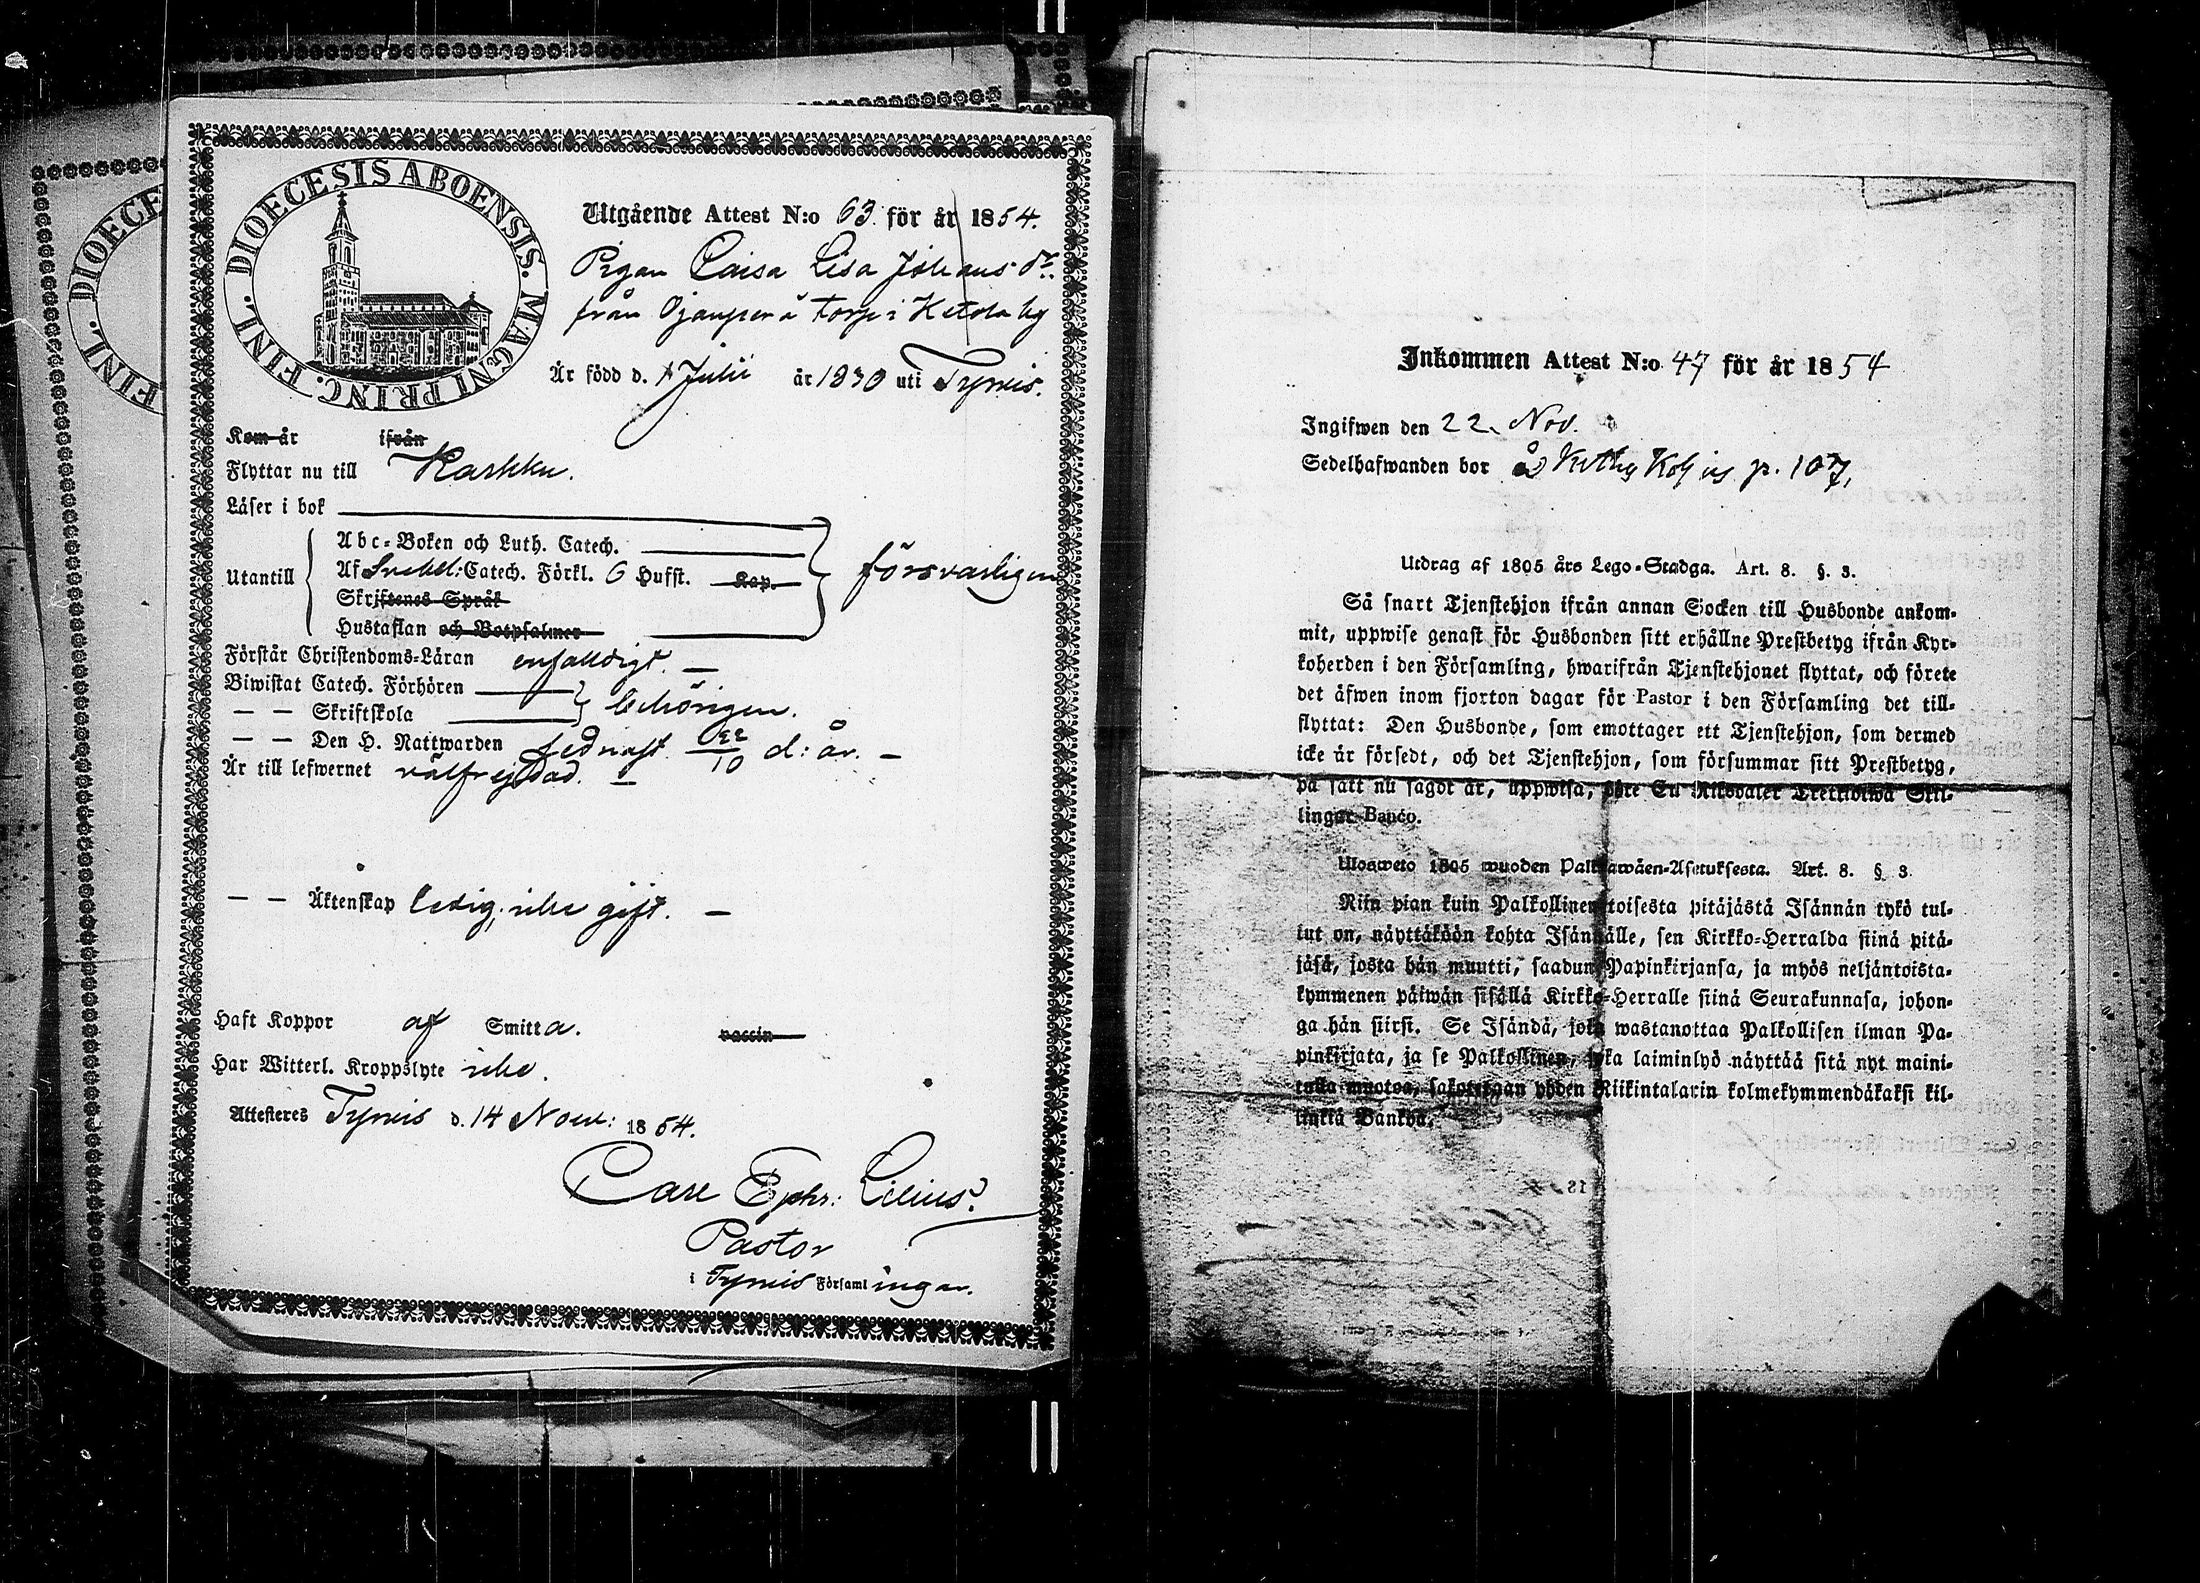 DIOECESIS ABOENSIS. MAGNI PRINC. FINL.
Utgående Attest N:o 63 för år 1854.
Pigan Caisa Lisa Johans dr.
från Ojanperä torp i Ketola by
Är född d. 1 Julii år 1830 uti Tyrvis.
Kom år ifrån
Flyttar nu till Karkku.
Läser i bok
Utantill
Abc-Boken och Luth. Catech.
Af Svebel: Catech. Förkl. 6 Hufst. Kap.
försvarligen
Skriftenes Språk
Hustaflan och Botpsalmer
Förstår Christendoms-Läran enfaldigt. —
Biwistat Catech. Förhören
— — Skriftskola
behörigen.
— — Den H. Nattwarden sednast 22/10 d: år. —
Är till lefwernet välfrejdad. —
— — Äktenskap ledig, icke gift. —
Haft Koppor af Smitta. vaccin
Har Witterl. Kroppslyte icke.
Attesteres Tyrvis d. 14 Nov: 1854.
Carl Ephr: Lilius.
Pastor
i Tyrvis Församlingar.
DIOECE
FINL.
Inkommen Attest N:o 47 för år 1854
Ingifwen den 22. Nov.
Sedelhafwanden bor å p. 107,
Utdrag af 1805 års Lego-Stadga. Art. 8. §. 3.
Så snart Tjenstehjon ifrån annan Socken till Husbonde ankom-
mit, uppwise genast för Husbonden sitt erhållne Prestbetyg ifrån Kyr-
koherden i den Församling, hwarifrån Tjenstehjonet flyttat, och förete
det äfwen inom fjorton dagar för Pastor i den Församling det till-
flyttat: Den Husbonde, som emottager ett Tjenstehjon, som dermed
icke är försedt, och det Tjenstehjon, som försummar sitt Prestbetyg,
på sätt nu sagdt är, uppwisa, böte En Riksdaler Trettiotwå Skil-
lingar Banco.
Ulosweto 1805 wuoden Palkkawäen-Asetuksesta. Art. 8. § 3.
Niin pian kuin Palkollinen toisesta pitäjästä Isännän tykö tul-
lut on, näyttäköön kohta Isännälle, sen Kirkko-Herralda siinä pitä-
jäsä, josta hän muutti, saadun Papinkirjansa, ja myös neljäntoista-
kymmenen päiwän sisällä Kirkko-Herralle siinä Seurakunnasa, johon-
ga hän siirsi. Se Isändä, joka wastanottaa Palkollisen ilman Pa-
pinkirjata, ja se Palkollinen, joka laiminlyö näyttää sitä nyt maini-
tulla muotoa, sakotetaan yhden Riikintalarin kolmekymmendäkaksi kil-
linkiä Bankoa.